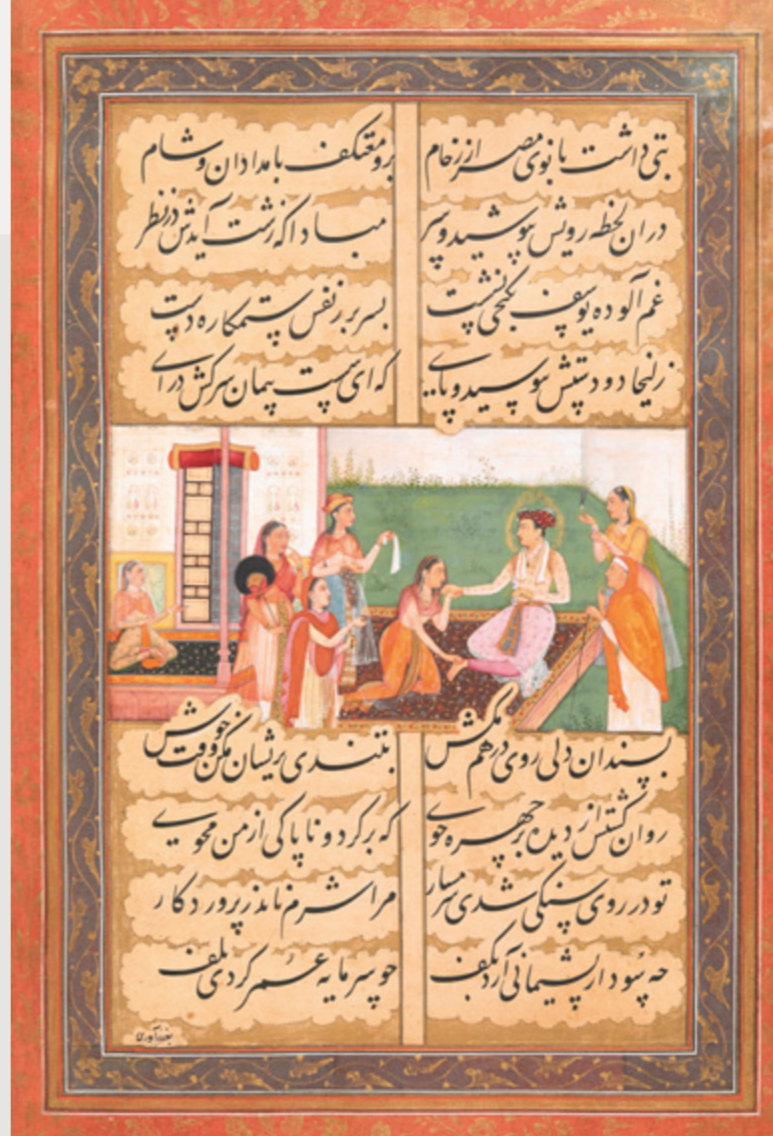 بتی داشت بانوی مصر از رخام برو معتکف بامدادان و شام
دران لحظه رویش بپوشید و سر مبادا که زشت آیدش در نظر
غم آلوده یوسف بکنجی نشست بسر بر ز نفس ستمکاره دست
زلیخا دو دستش ببوسید و پای که ای سست پیمان سرکش درای
بسندان دلی روی درهم مکش بتندی پریشان مکن وقت خوش
روان گشتش از دیده بر چهره جوی که برگرد و ناپاکی از من مجوی
تو در روی سنگی شدی شرمسار مرا شرم ناید ز پروردگار
چه سود از پشیمانی آید بکف چو سرمایه عمر کردی تلف